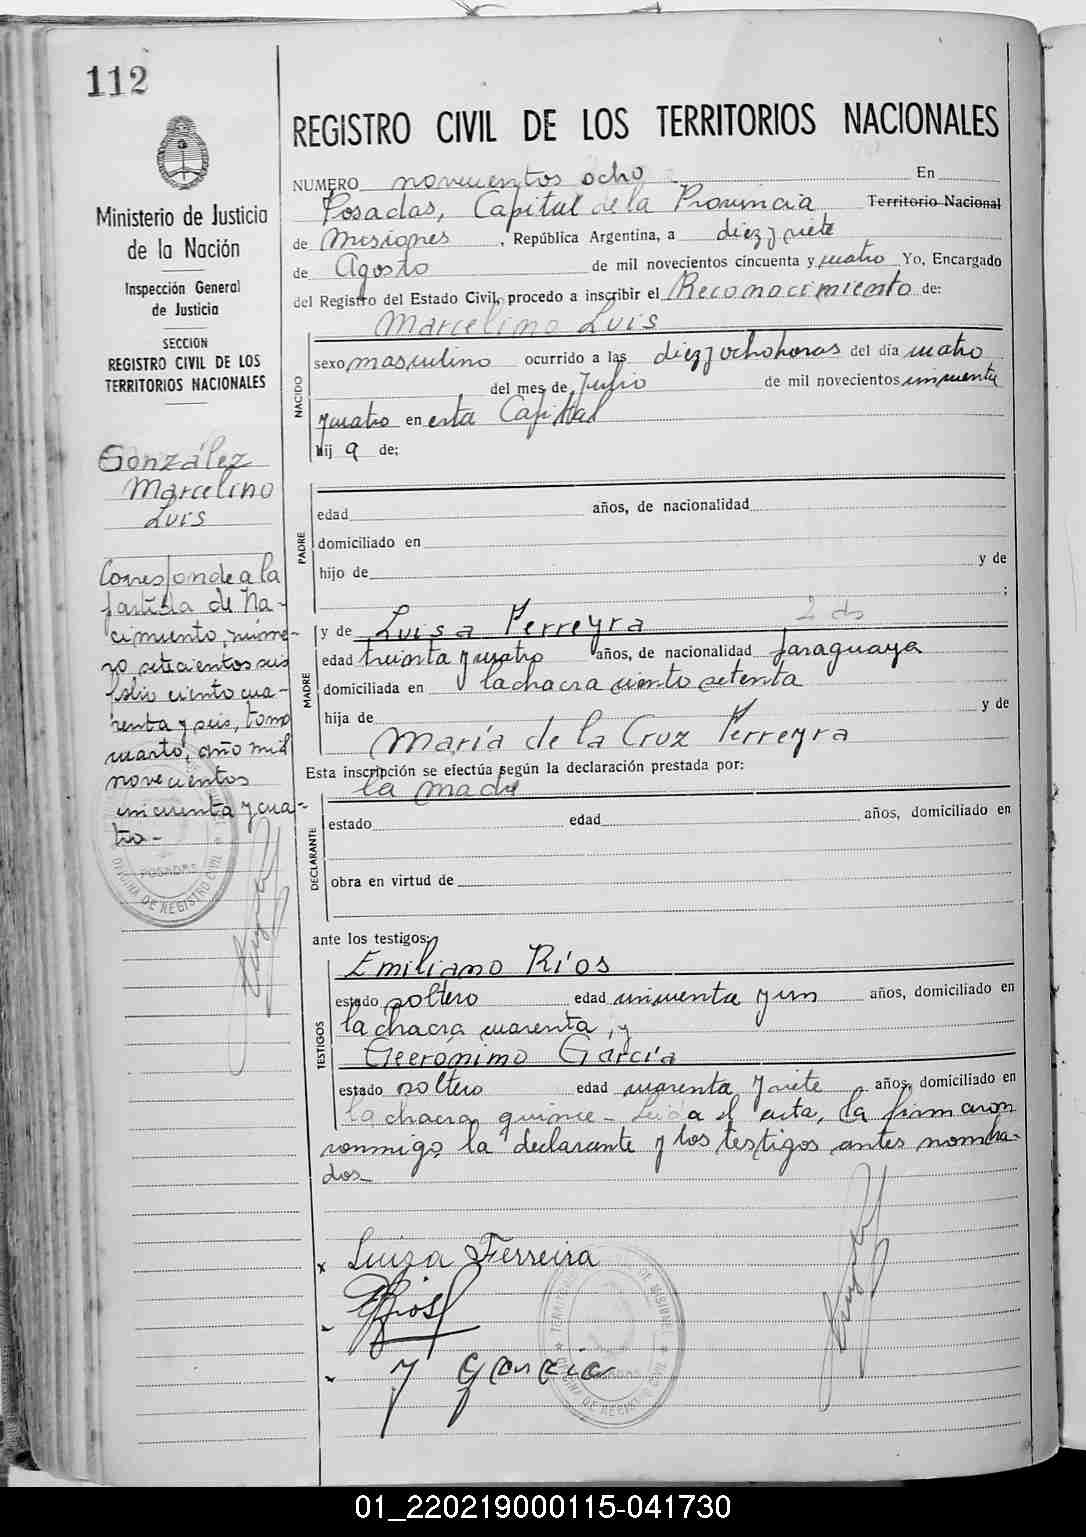 112
Ministerio de Justicia
de la Nación
Inspección General
de Justicia
SECCION
REGISTRO CIVIL DE LOS
TERRITORIOS NACIONALES
González
Marcelino
Luis
Corresponde a la
partida de Na-
cimiento, núme-
ro setecientos seis
folio ciento cua-
renta y seis, tomo
cuarto, año mil
novecientos
cincuenta y cua-
tro-
POSADAS
OFICINA DE REGISTRO CIVIL
REGISTRO CIVIL DE LOS TERRITORIOS NACIONALES
NUMERO novecientos ocho En
Posadas, Capital de la Provincia Territorio Nacional
de Misiones, República Argentina, a diez y siete
de Agosto de mil novecientos cincuenta y cuatro Yo, Encargado
del Registro del Estado Civil, procedo a inscribir el Reconocimiento de:
Marcelino Luis
NACIDO
sexo masculino ocurrido a las diez y ocho horas del día cuatro
del mes de Julio de mil novecientos cincuenta
y cuatro en esta Capital
hij o de;
PADRE
edad años, de nacionalidad
domiciliado en
hijo de y de
;
MADRE
y de Luisa Ferreyra
edad treinta y cuatro años, de nacionalidad paraguaya
domiciliada en la chacra ciento setenta
hija de y de
María de la Cruz Ferreyra
Esta inscripción se efectúa según la declaración prestada por:
la madre
DECLARANTE
estado edad años, domiciliado en
obra en virtud de
ante los testigos:
TESTIGOS
Emiliano Ríos
estado soltero edad cincuenta y un años, domiciliado en
la chacra cuarenta, y
Geerónimo García
estado soltero edad cuarenta y siete años, domiciliado en
la chacra quince- Leida el acta, la firmaron
conmigo la declarante y los testigos antes nombra-
dos-
x Luiza Ferreira
ERios
J Garcia
OFICINA DE REGISTRO CIVIL
01_220219000115-041730